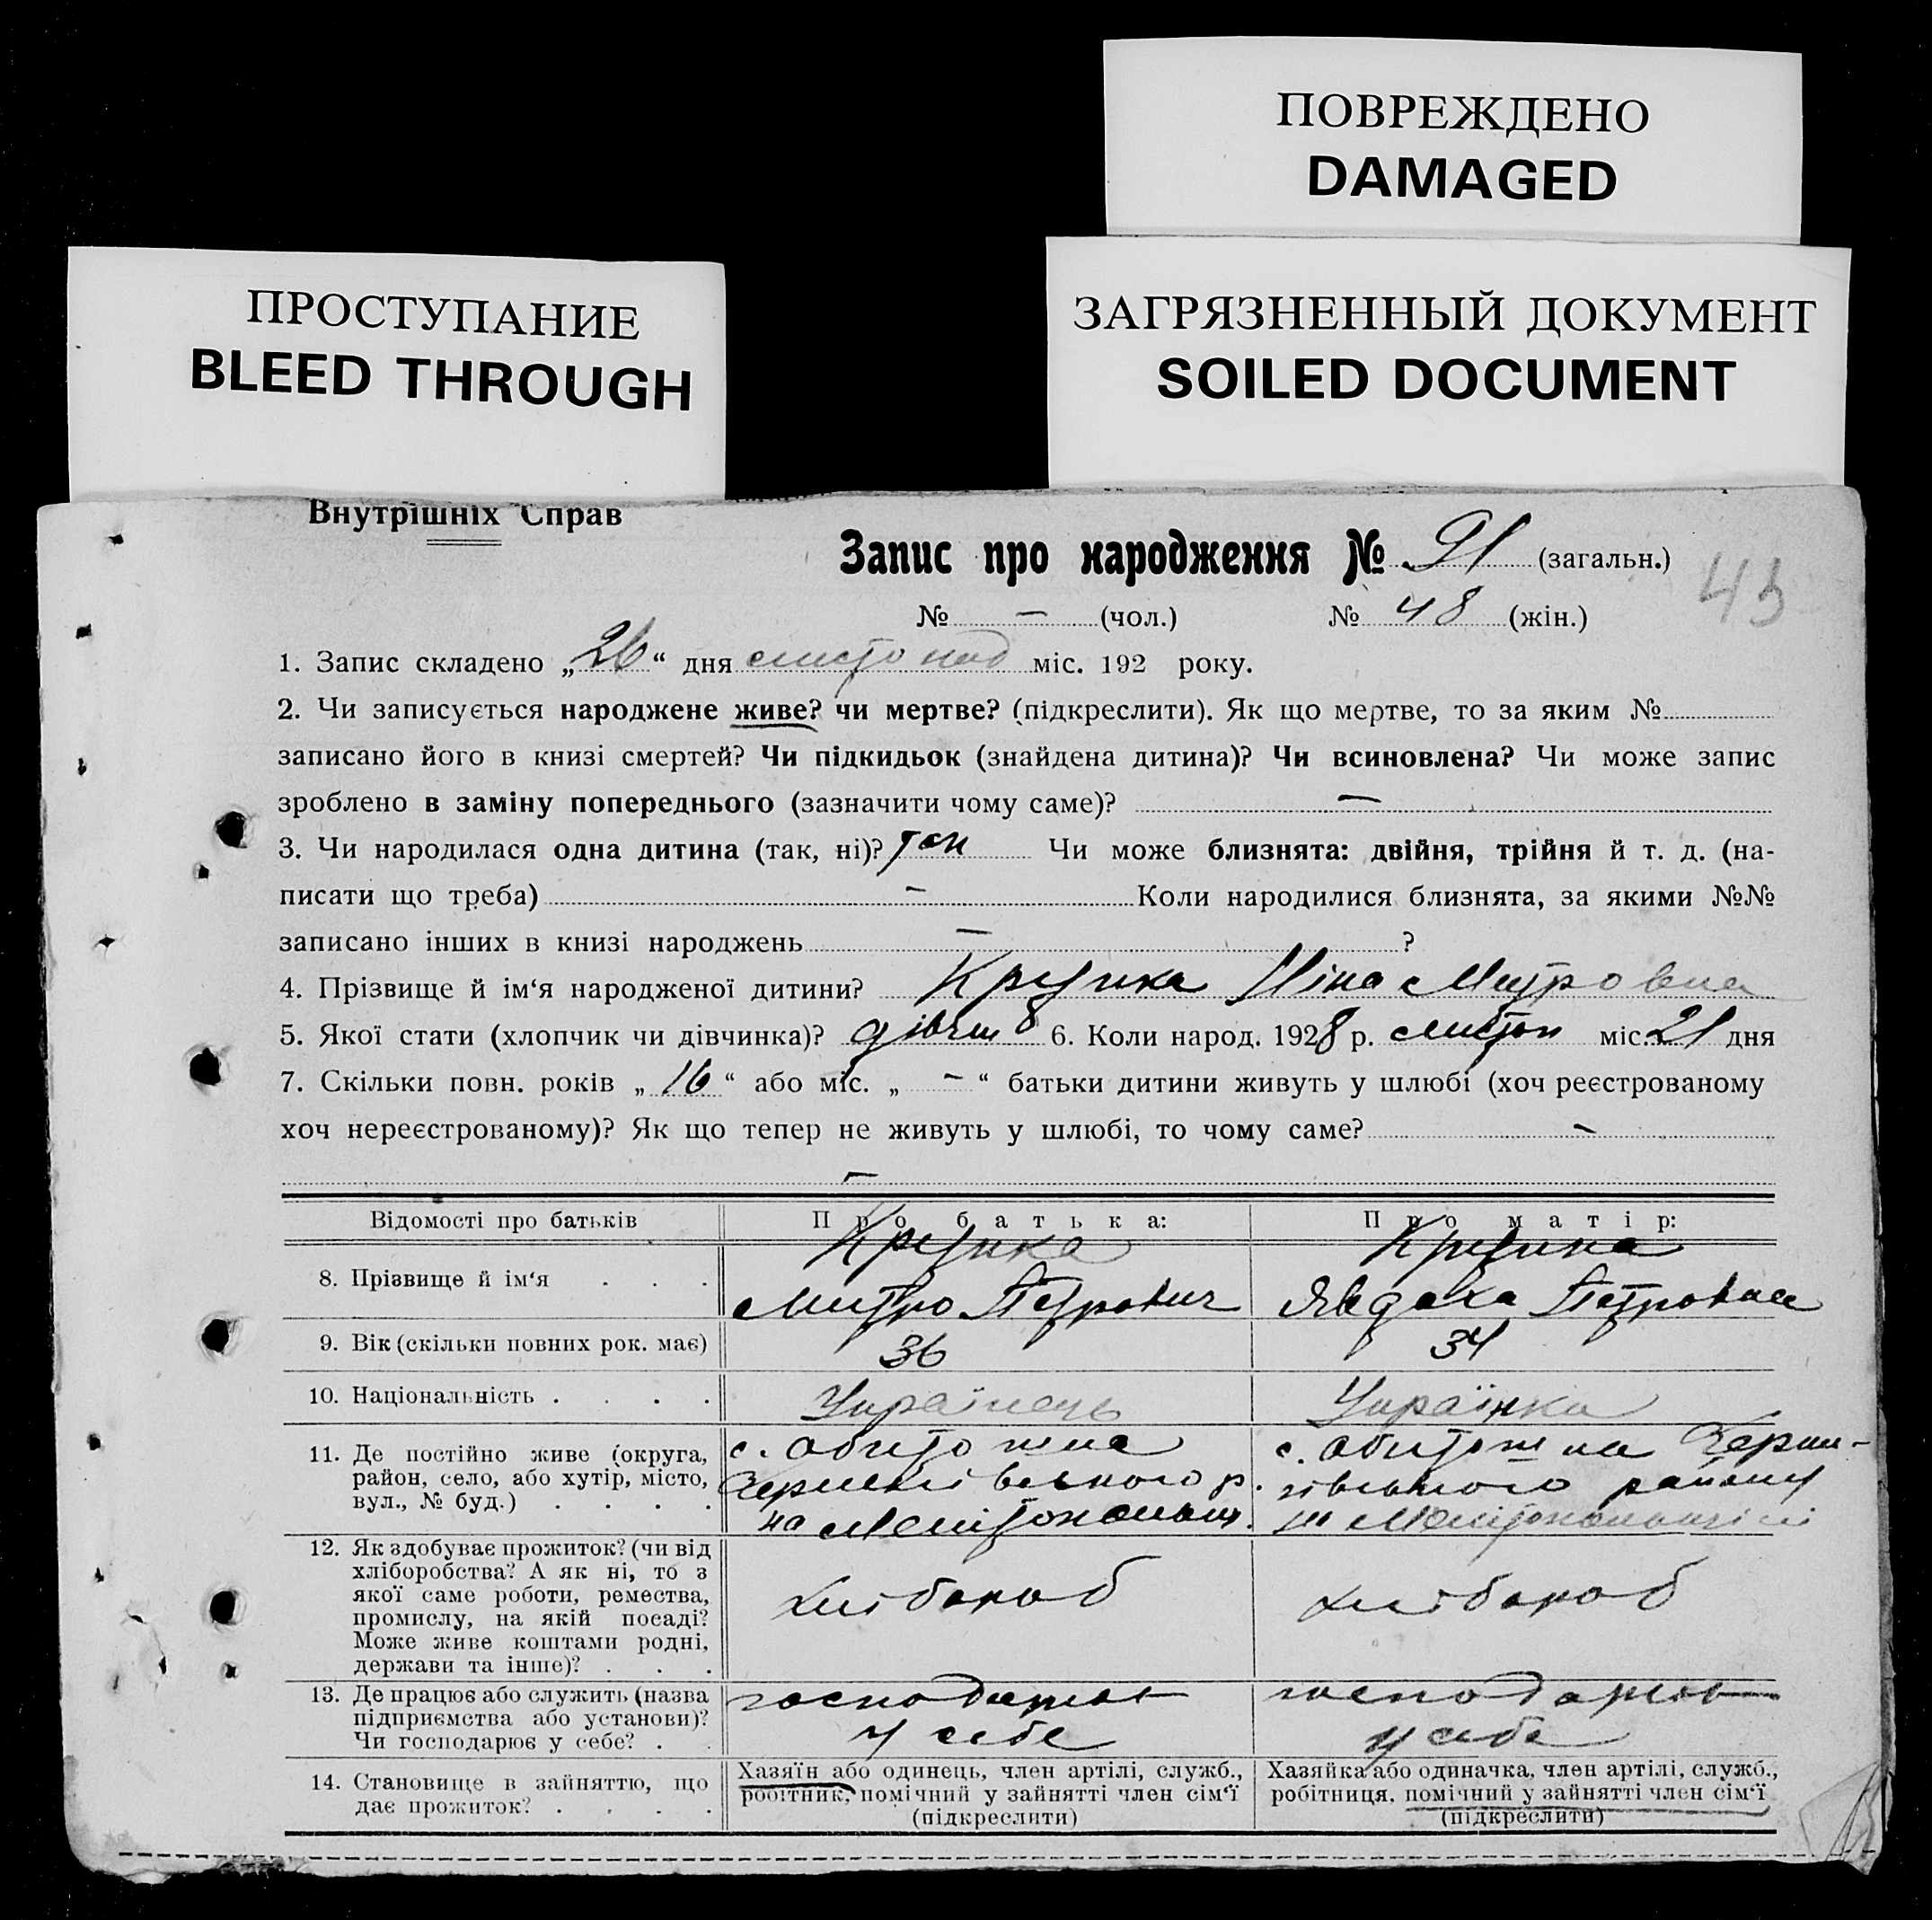 ПОВРЕЖДЕНО
DAMAGED
ПРОСТУПАНИЕ
BLEED THROUGH
ЗАГРЯЗНЕННЫЙ ДОКУМЕНТ
SOILED DOCUMENT
Внутрішніх Справ
Запис про народження № 91 (загальн.)
№ — (чол.) № 48 (жін.)
1. Запис складено „26“ дня листопад міс. 192 року.
2. Чи записується народжене живе? чи мертве? (підкреслити). Як що мертве, то за яким №
записано його в книзі смертей? Чи підкидьок (знайдена дитина)? Чи всиновлена? Чи може запис
зроблено в заміну попереднього (зазначити чому саме)? —
3. Чи народилася одна дитина (так, ні)? так Чи може близнята: двійня, трійня й т. д. (на-
писати що треба) — Коли народилися близнята, за якими №№
записано інших в книзі народжень — ?
4. Прізвище й ім‘я народженої дитини? Ніна Митровна
5. Якої стати (хлопчик чи дівчинка)? дівчин 6. Коли народ. 1928 р. листоп міс. 21 дня
7. Скільки повн. років „16“ або міс. „—“ батьки дитини живуть у шлюбі (хоч реєстрованому
хоч нереєстрованому)? Як що тепер не живуть у шлюбі, то чому саме? —
—
Відомості про батьків
Про батька:
Про матір:
8. Прізвище й ім‘я . . .
Митро Петрович
Явдоха Петровна
9. Вік (скільки повних рок. має)
36
34
10. Національність . . . .
Українець
Українка
11. Де постійно живе (округа,
район, село, або хутір, місто,
вул., № буд.) . . . .
с. Обіточна
р.
на Мелітопольщ.
с. Обіточна
району
на Мелітопольщині
12. Як здобуває прожиток? (чи від
хліборобства? А як ні, то з
якої саме роботи, ремества,
промислу, на якій посаді?
Може живе коштами родні,
держави та інше)? . . .
хлібороб
хлібороб
13. Де працює або служить (назва
підприємства або установи)?
Чи господарює у себе? . .
господарює
у себе
господарює
у себе
14. Становище в зайняттю, що
дає прожиток? . . . .
Хазяїн або одинець, член артілі, служб.,
робітник, помічний у зайнятті член сім‘ї
(підкреслити)
Хазяйка або одиначка, член артілі, служб.,
робітниця, помічний у зайнятті член сім‘ї
(підкреслити)